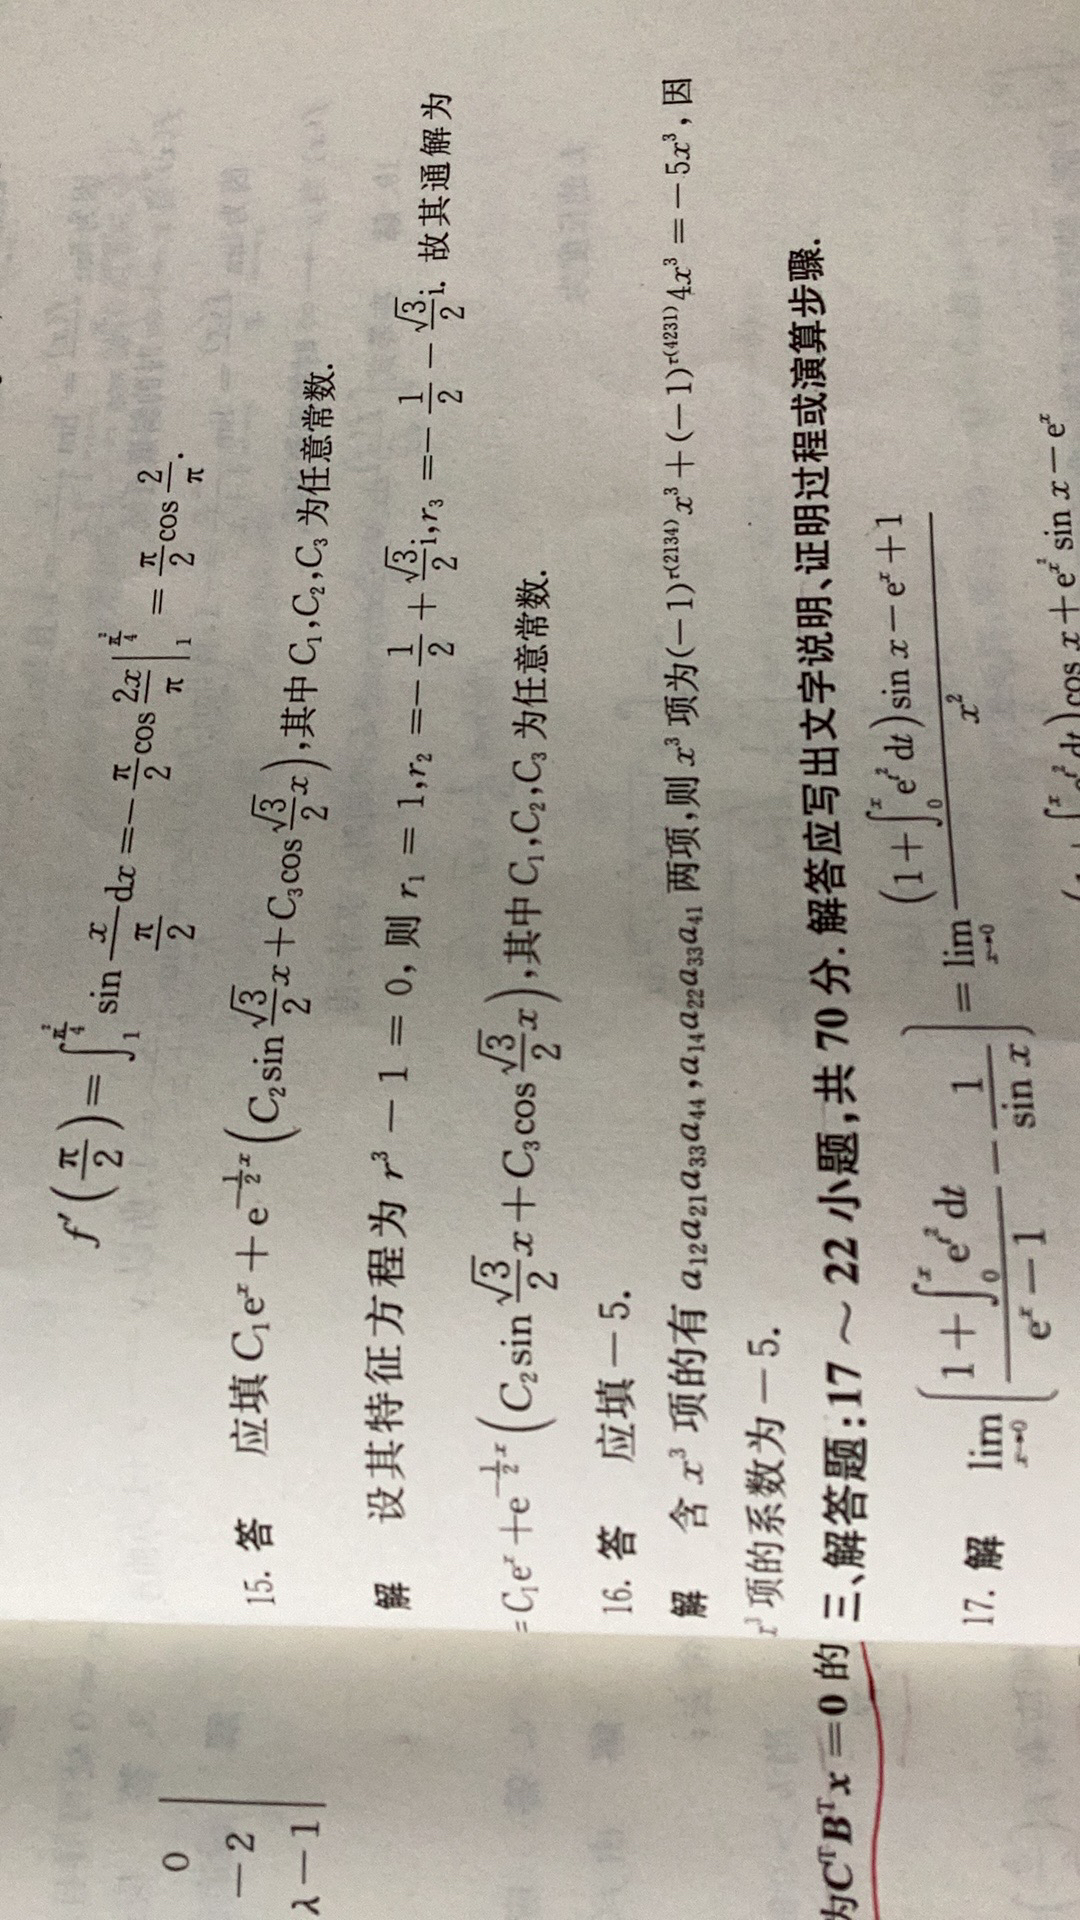 f′(π/2) = ∫₁^(π²/4) sin x/(π/2) dx = −π/2 cos 2x/π |₁^(π²/4) = π/2 cos 2/π.
15. 答 应填 C₁eˣ + e^(−½x) (C₂ sin √3/2 x + C₃ cos √3/2 x), 其中 C₁,C₂,C₃ 为任意常数.
解 设其特征方程为 r³ − 1 = 0, 则 r₁ = 1, r₂ = −1/2 + √3/2 i, r₃ = −1/2 − √3/2 i. 故其通解为
= C₁eˣ + e^(−½x) (C₂ sin √3/2 x + C₃ cos √3/2 x), 其中 C₁,C₂,C₃ 为任意常数.
16. 答 应填 −5.
解 含 x³ 项的有 a₁₂a₂₁a₃₃a₄₄, a₁₄a₂₂a₃₃a₄₁ 两项, 则 x³ 项为 (−1)^τ(2134) x³ + (−1)^τ(4231) 4x³ = −5x³, 因
x³ 项的系数为 −5.
三、解答题: 17 ~ 22 小题, 共 70 分. 解答应写出文字说明、证明过程或演算步骤.
17. 解 lim x→0 [(1 + ∫₀ˣ e^(t²) dt)/(eˣ − 1) − 1/sin x] = lim x→0 ((1 + ∫₀ˣ e^(t²) dt) sin x − eˣ + 1)/x²
cos x + e^(x²) sin x − eˣ
0
−2
λ − 1
为 CᵀBᵀx = 0 的